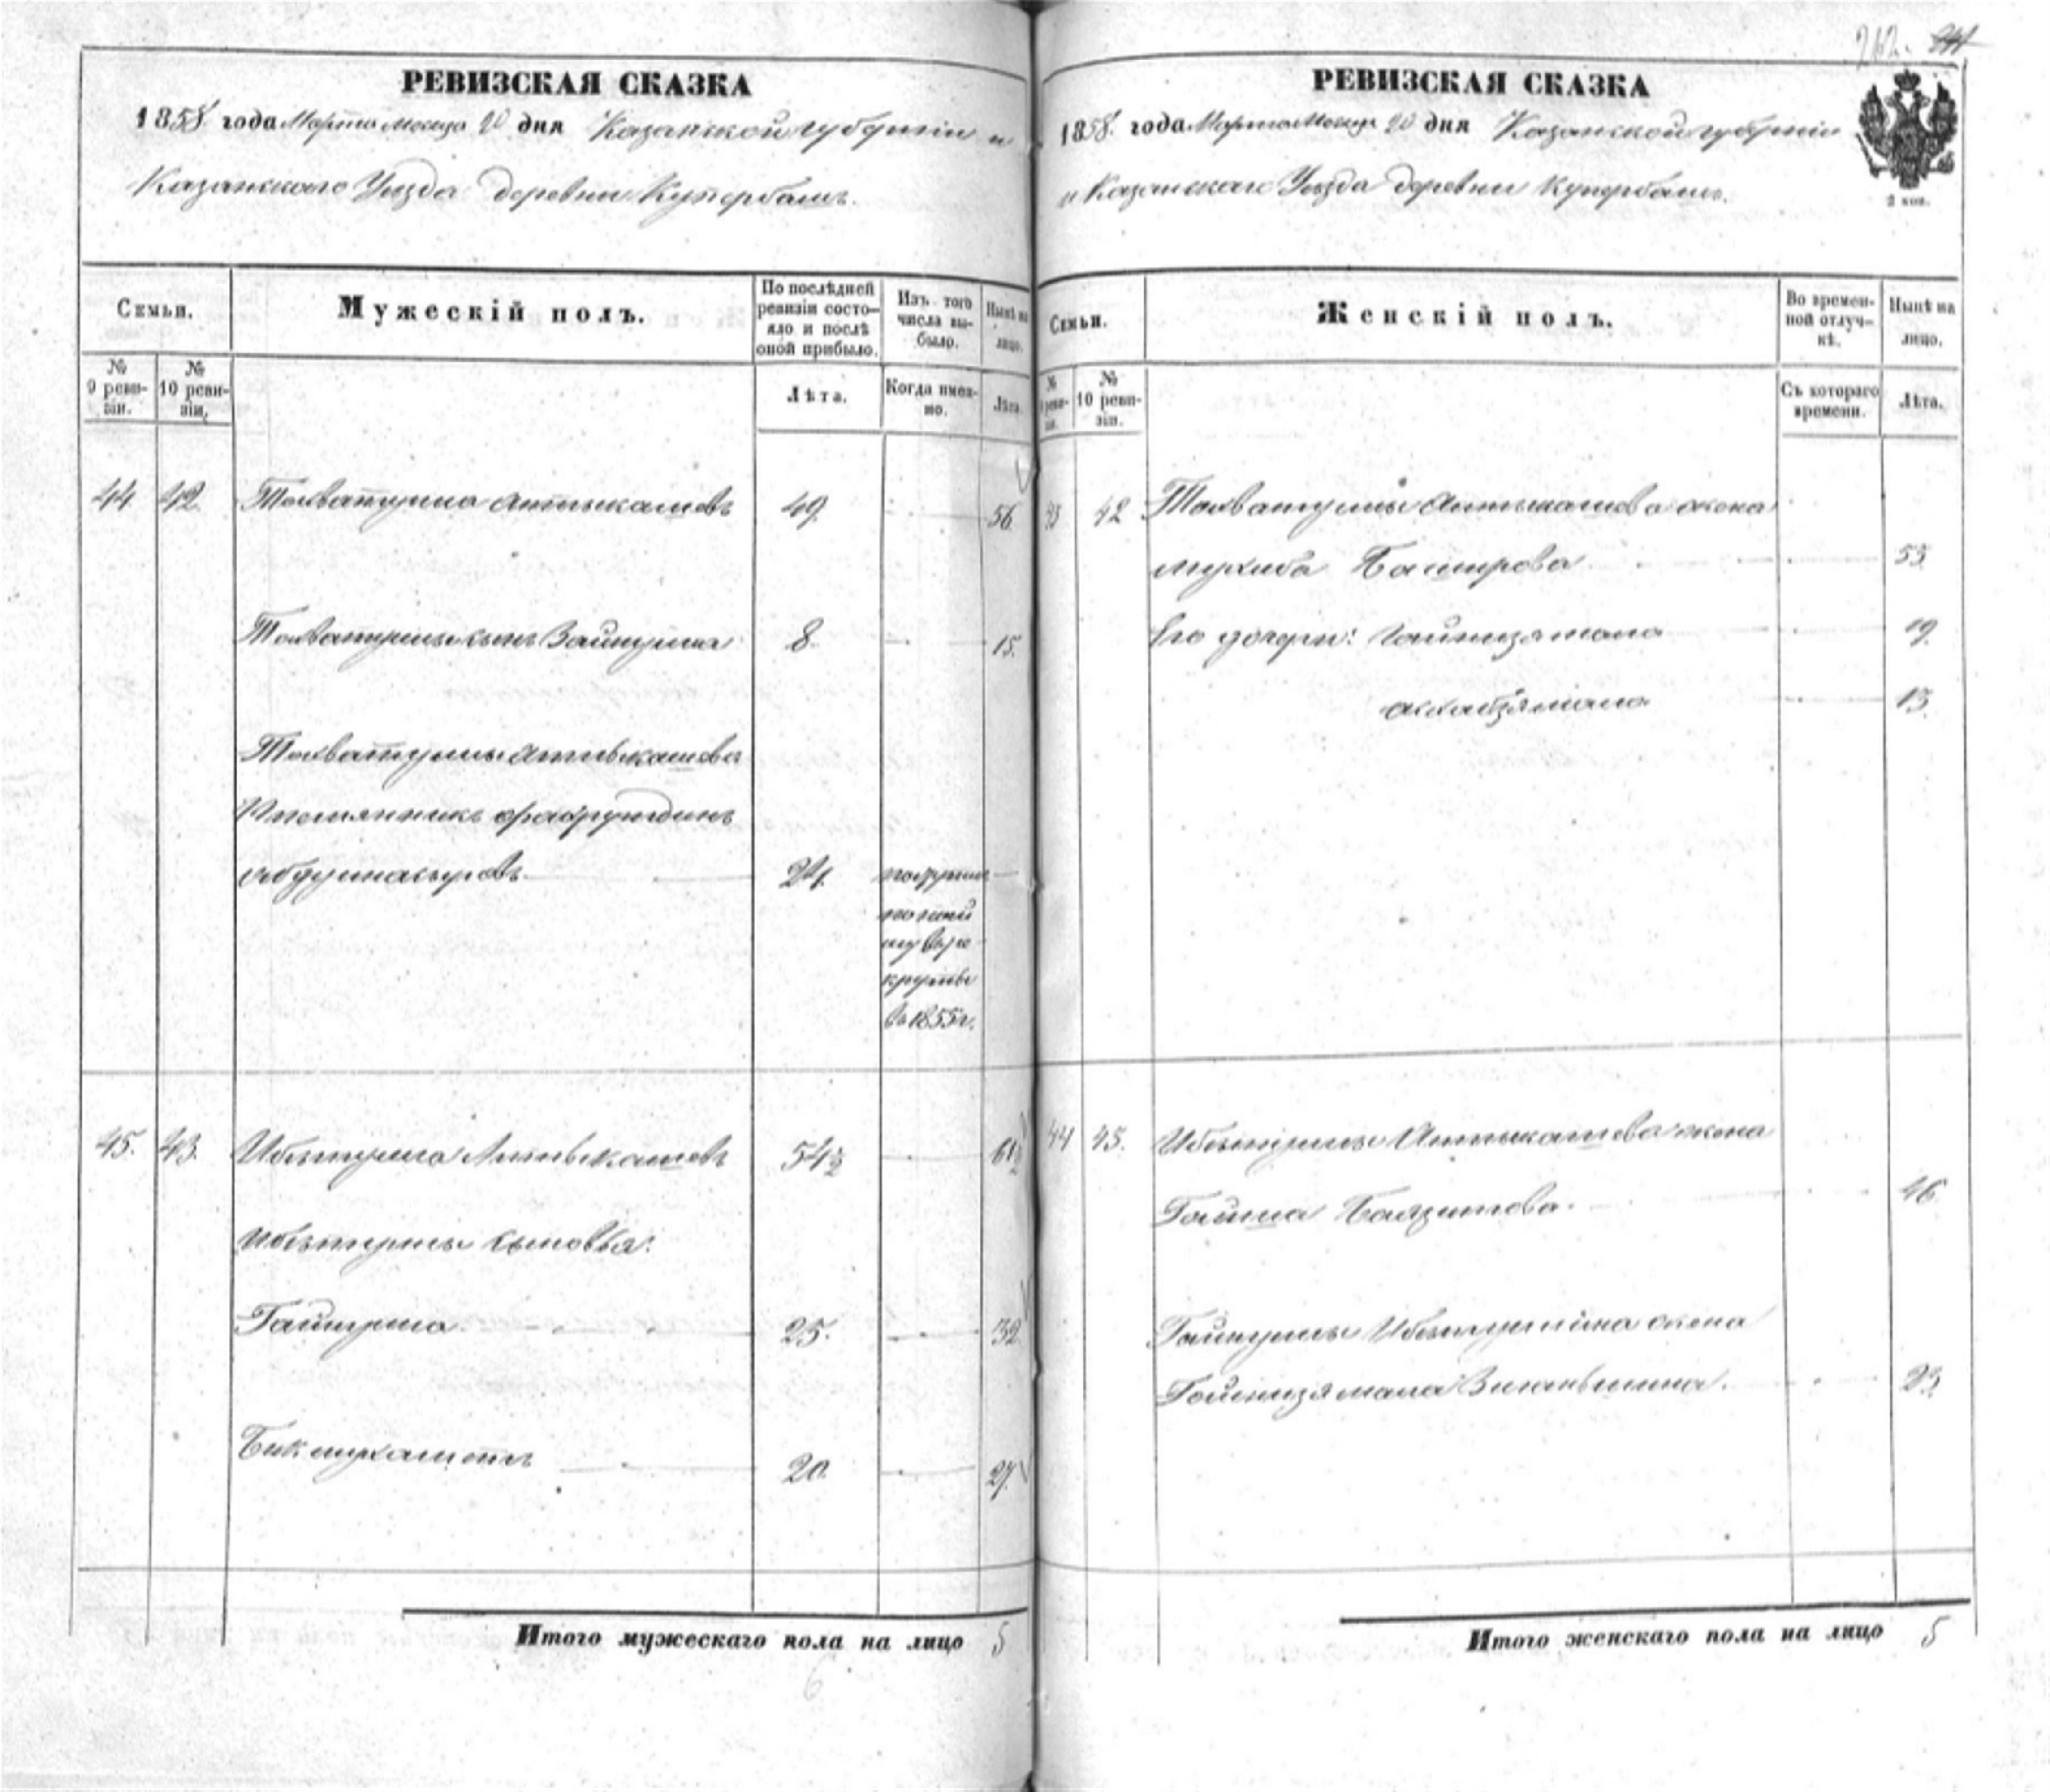 262.
РЕВИЗСКАЯ СКАЗКА
1858 года Марта месяца 20 дня Казанской губернии и
Казанскаго Уезда деревни Купербашъ.
Семьи.
Мужескій полъ.
По послѣдней ревизіи состояло и послѣ оной прибыло.
Изъ того числа выбыло.
Нынѣ на лицо.
№ 9 ревизіи.
№ 10 ревизіи.
Лѣта.
Когда именно.
Лѣта.
44 42 Тохватулла Аптыкашевъ 49. 56
Тохватуллы сынъ Зайнулла 8. 15.
Тохватуллы Аптыкашева
Племянникъ Фахрутдинъ
Абдулнасыровъ 24.
въ 1855 г.
45. 43. Ибятулла Аптыкашевъ 54½ 61½
Ибятуллы сыновья:
Гайнулла. 25. 32
Бикмухаметъ 20. 27.
Итого мужескаго пола на лицо 5
6
РЕВИЗСКАЯ СКАЗКА
1858. года Марта месяца 20 дня Казанской губерніи
и Казанскаго Уезда деревни Купербашъ.
2 коп.
Семьи.
Женскій полъ.
Во временной отлучкѣ.
Нынѣ на лицо.
№ 10 ревизіи.
Съ котораго времени.
Лѣта.
42 Тохватуллы Аптыкашева жена
Баширова 55
Его дочери: Гайнизямала 19.
13.
44 43. Ибятуллы Аптыкашева жена
Баязитова. 46
Гайнуллы Ибятуллина жена
Гайнизямала 23.
Итого женскаго пола на лицо 5